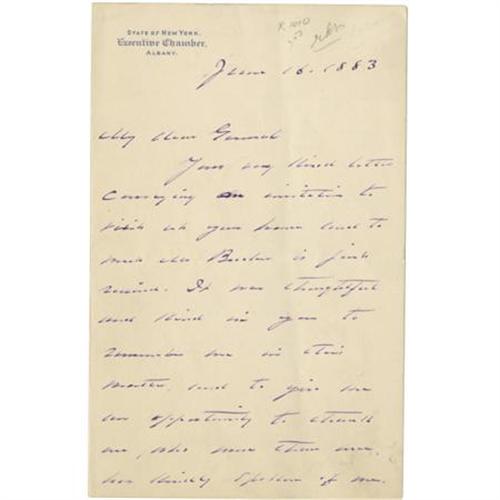 STATE OF NEW YORK.
Executive Chamber,
ALBANY.
June 16. 1883
My dear General
Your very kind letter
conveying an invitation to
visit at your house and to
meet Mr Beecher is just
received. It was thoughtful
and kind in you to
remember me in this
matter, and to give me
an opportunity to thank
one, who more than once,
has kindly spoken of me.